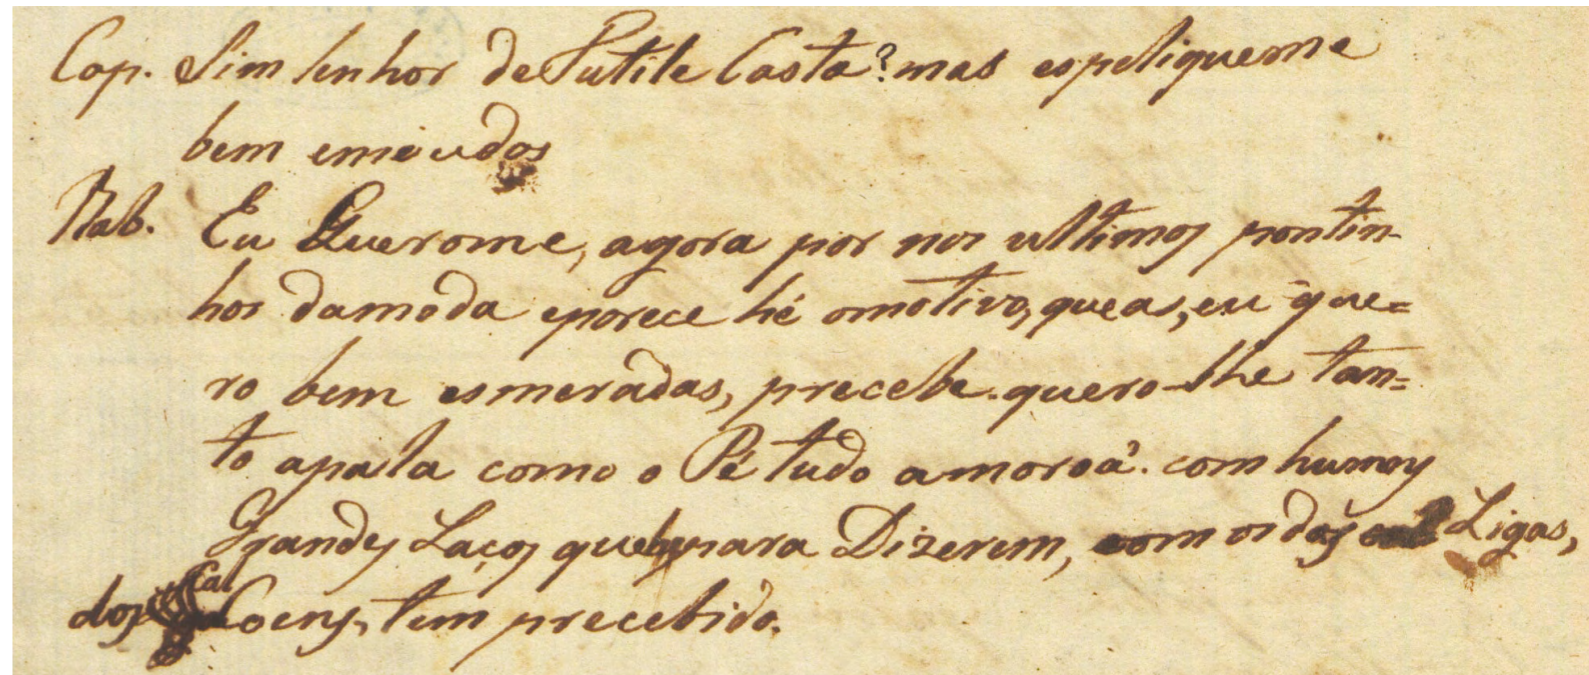 Cap. Sim senhor de Sutile Casta? mas espeliqueme
bem emeudos
Rab. Eu Querome, agora por nos ultimos pontin-
hos damoda eparece hé omotivo, queas, eu que=
ro bem esmeradas, precebe. quero-lhe tan=
to apala como o Pé tudo amoroá. com humos
Grandes Laços que para Dizerem, com os dos Ligas,
dos Calcoens, tem precebido.